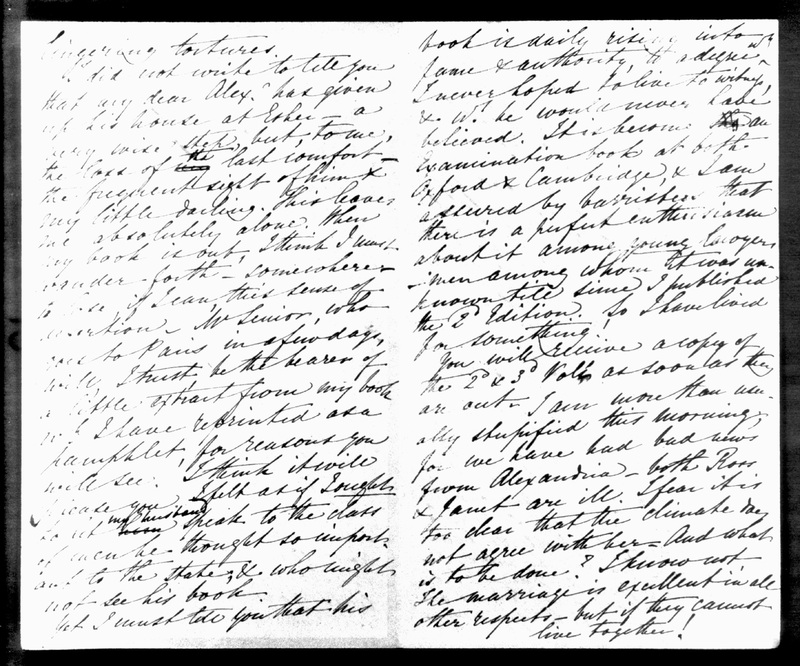 lingering tortures.
I did not write to tell you
that my dear Alex.r has given
up his house at Esher – a
very wise step, but, to me,
the loss of the last comfort –
the frequent sight of him &
my little darling. This leaves
me absolutely alone. When
my book is out, I think I must
wander forth – somewhere –
to lose if I can this sense of
desertion – Mr Senior, who
goes to Paris in a few days,
will, I trust, be the bearer of
a little extract from my book
wh I have reprinted as a
pamphlet, for reasons you
will see. I think it will
please you. I felt as if I ought
to let my husband speak to the class
of men he thought so import-
ant to the state, & who might
not see his book.
Yet I must tell you that his
book is daily rising into
fame & authority, to a degree wh
I never hoped to live to witness,
& wh he would never have
believed. It is become an
examination book at both
Oxford & Cambridge, & I am
assured by barristers that
there is a perfect enthusiasm
about it among young lawyers
– men among whom it was un-
known till since I published
the 2d Edition. So I have lived
for something!
You will receive a copy of
the 2d & 3d Vols as soon as they
are out – I am more than usu-
ally stupified this morning,
for we have had bad news
from Alexandria – both Ross
& Janet are ill. I fear it is
too clear that the climate does
not agree with her – And what
is to be done? I know not
The marriage is excellent in all
other respects – but if they cannot
live together!